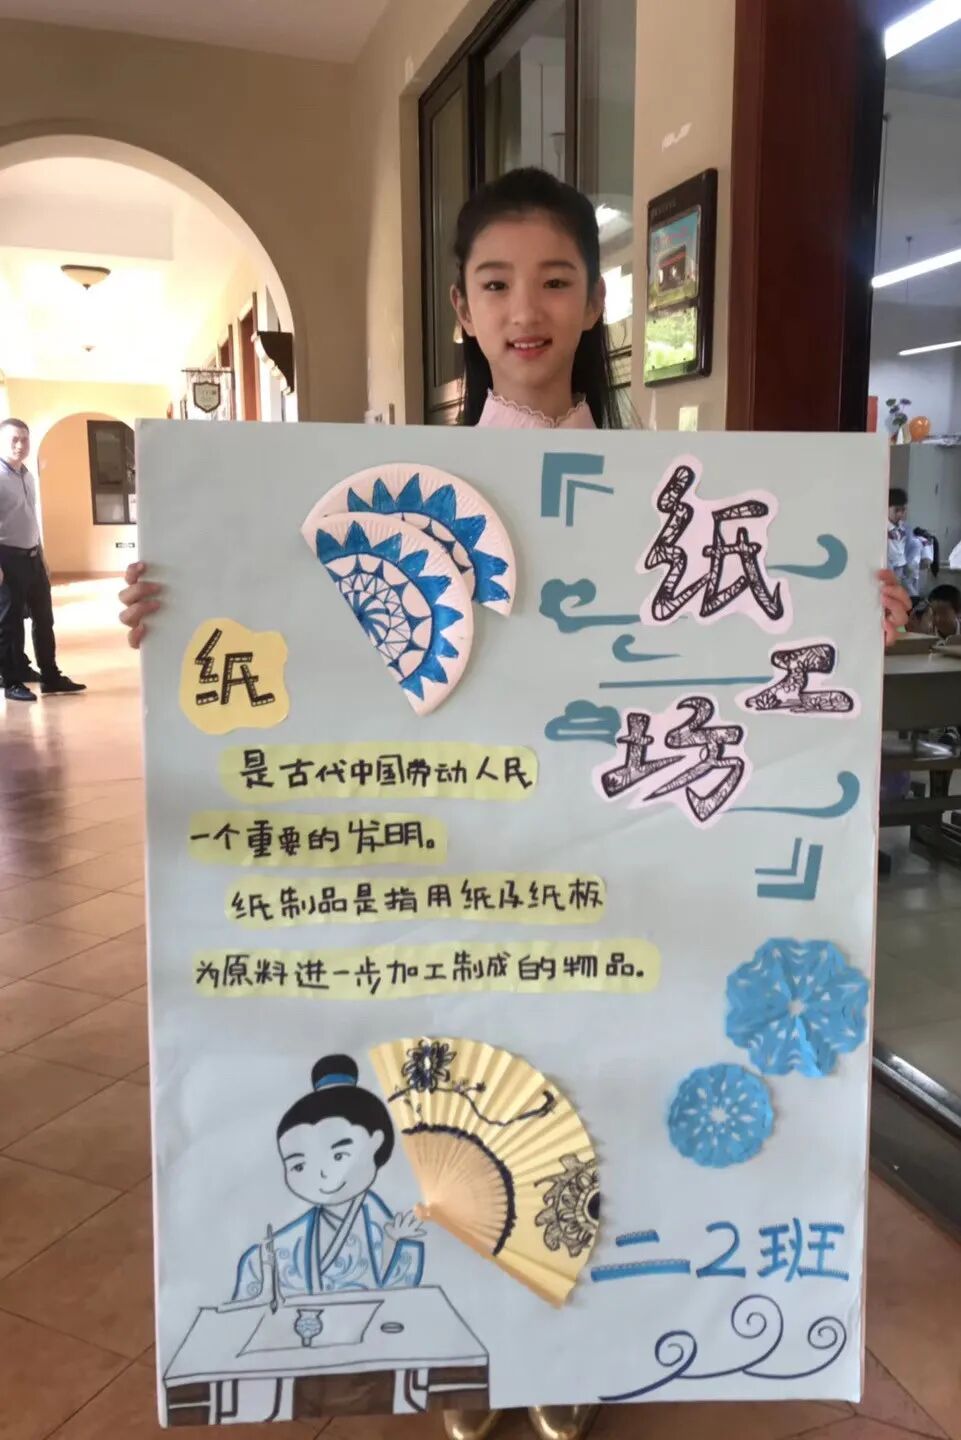 纸工坊
纸
是古代中国劳动人民
一个重要的发明。
纸制品是指用纸及纸板
为原料进一步加工制成的物品。
二2班